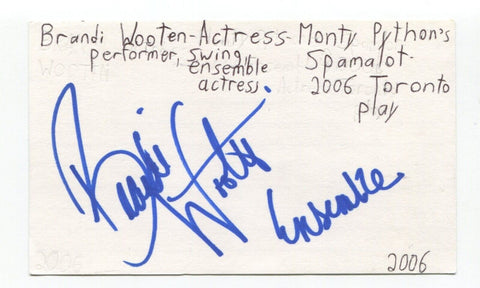 Brandi Wooten-Actress-Monty Python's
performer, swing, Spamalot-
ensemble
actress 2006 Toronto
play
Brandi Wooten
Ensemble
2006